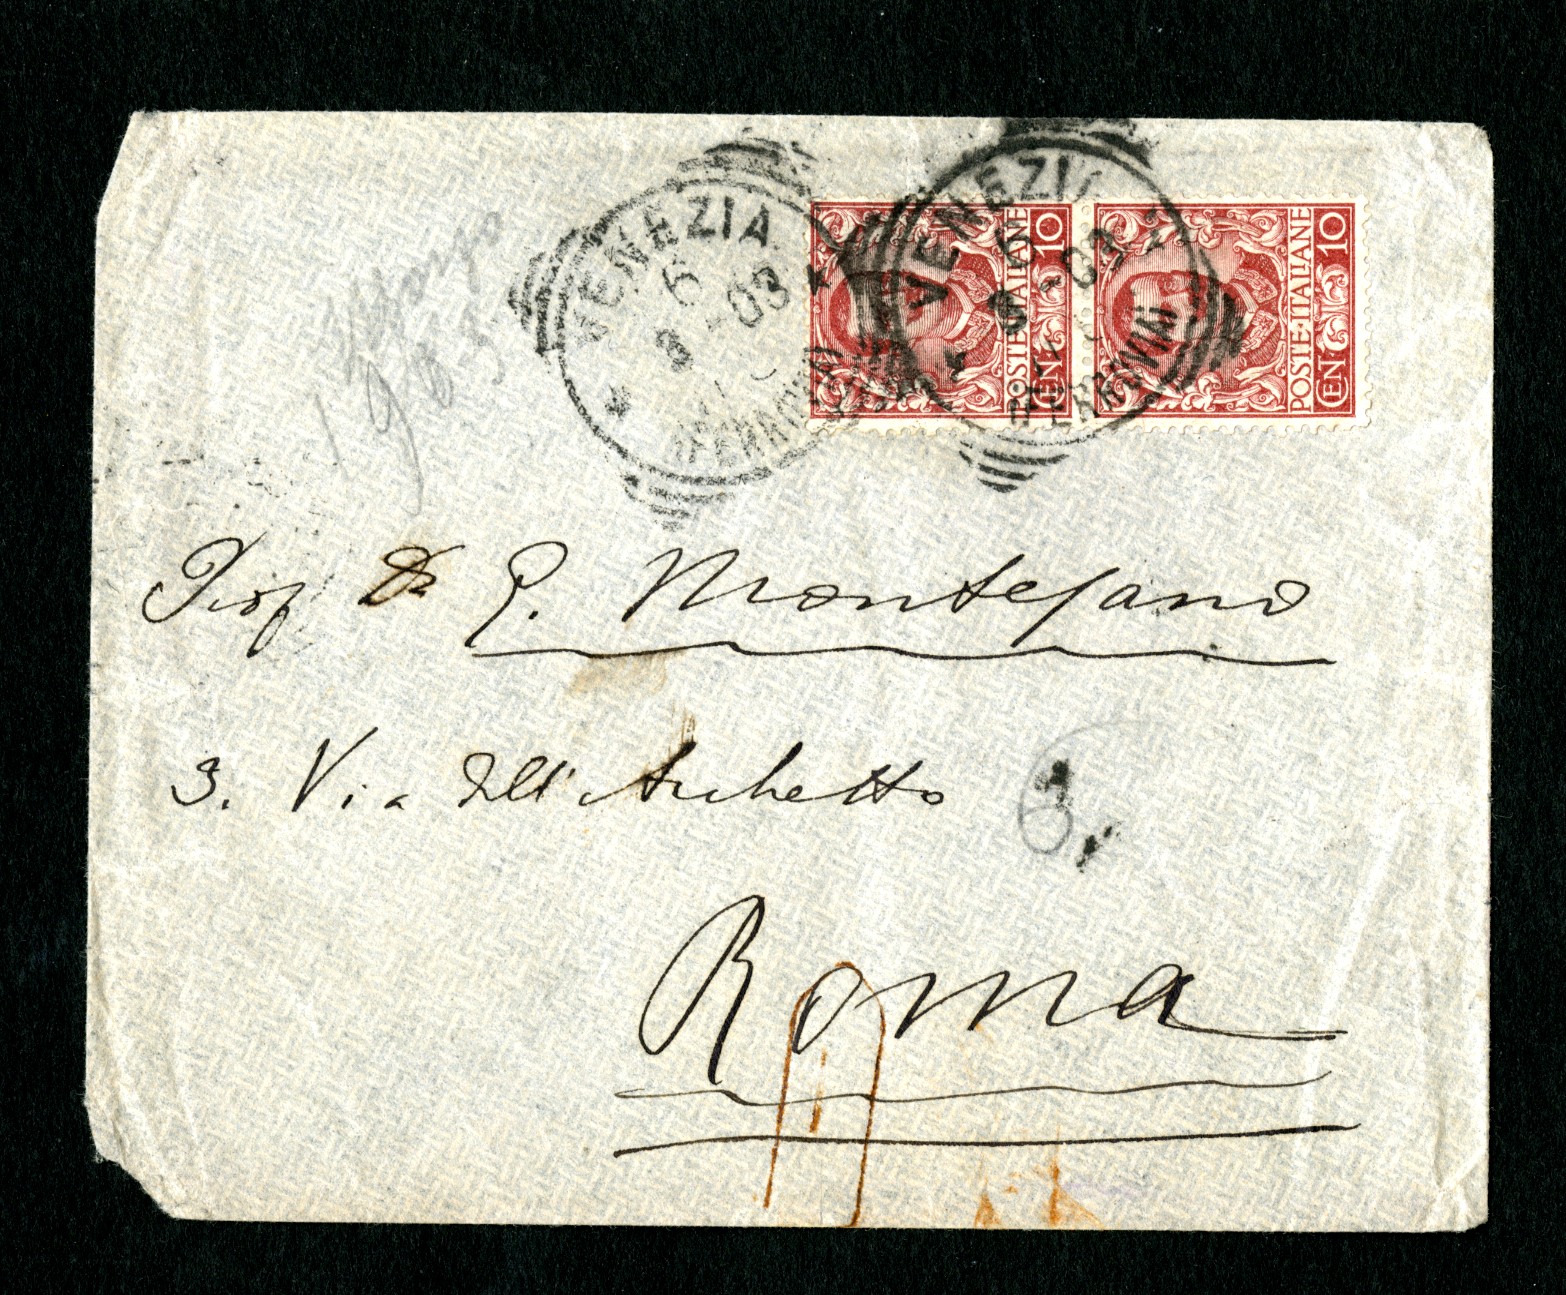 VENEZIA
6
9 - 03
(FERROVIA)
VENEZIA
6
9 - 03
FERROVIA
POSTE·ITALIANE
CEN 10
POSTE·ITALIANE
CEN 10
1903
Prof Dr G. Montefano
3. Via dell'Archetto
6
Roma